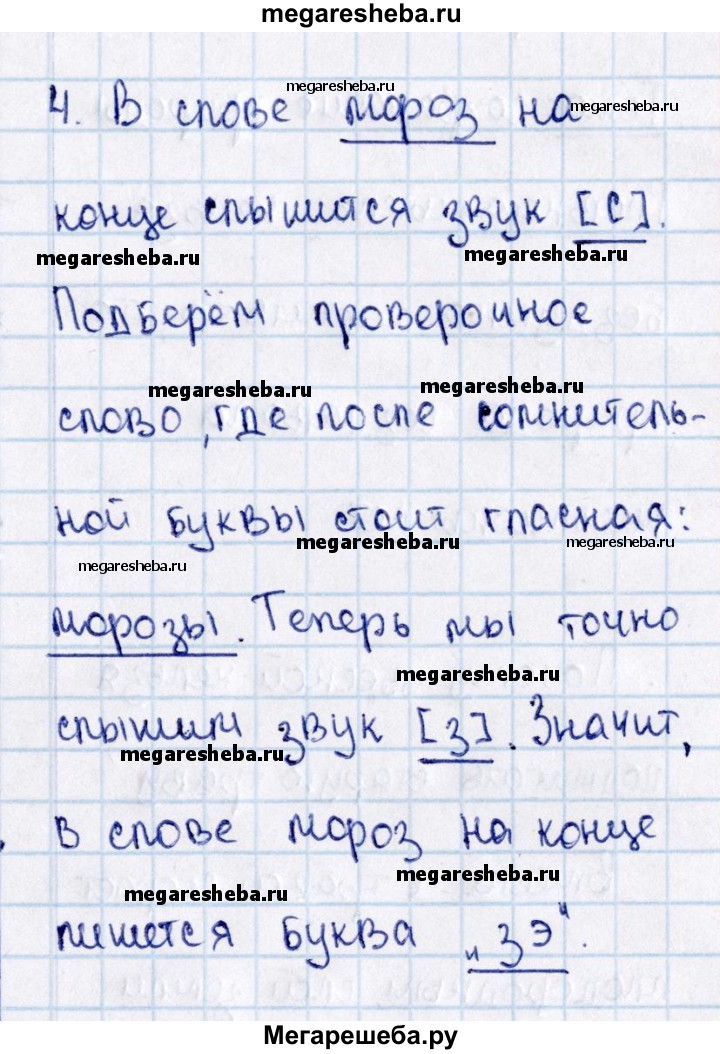 megaresheba.ru
megaresheba.ru
4. В слове мороз на
megaresheba.ru
конце слышится звук [с].
megaresheba.ru
megaresheba.ru
Подберём проверочное
megaresheba.ru
megaresheba.ru
слово, где после сомнитель-
ной буквы стоит гласная:
megaresheba.ru
megaresheba.ru
megaresheba.ru
морозы. Теперь мы точно
megaresheba.ru
слышим звук [з]. Значит,
megaresheba.ru
в слове мороз на конце
megaresheba.ru
megaresheba.ru
пишется буква „зэ“.
Мегарешеба.ру